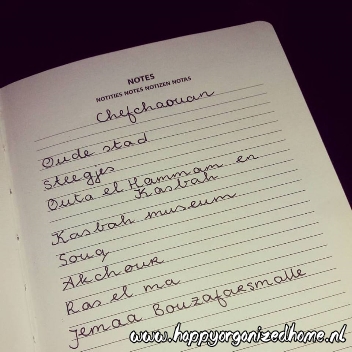 NOTES
NOTITIES NOTES NOTIZEN NOTAS
Chefchaouan
Oude stad
Steegjes
Outa el Hammam en
Kasbah
Kasbah museum
Souq
Akchour
Ras el ma
Jemaa Bouzafaesmalle
www.happyorganizedhome.nl